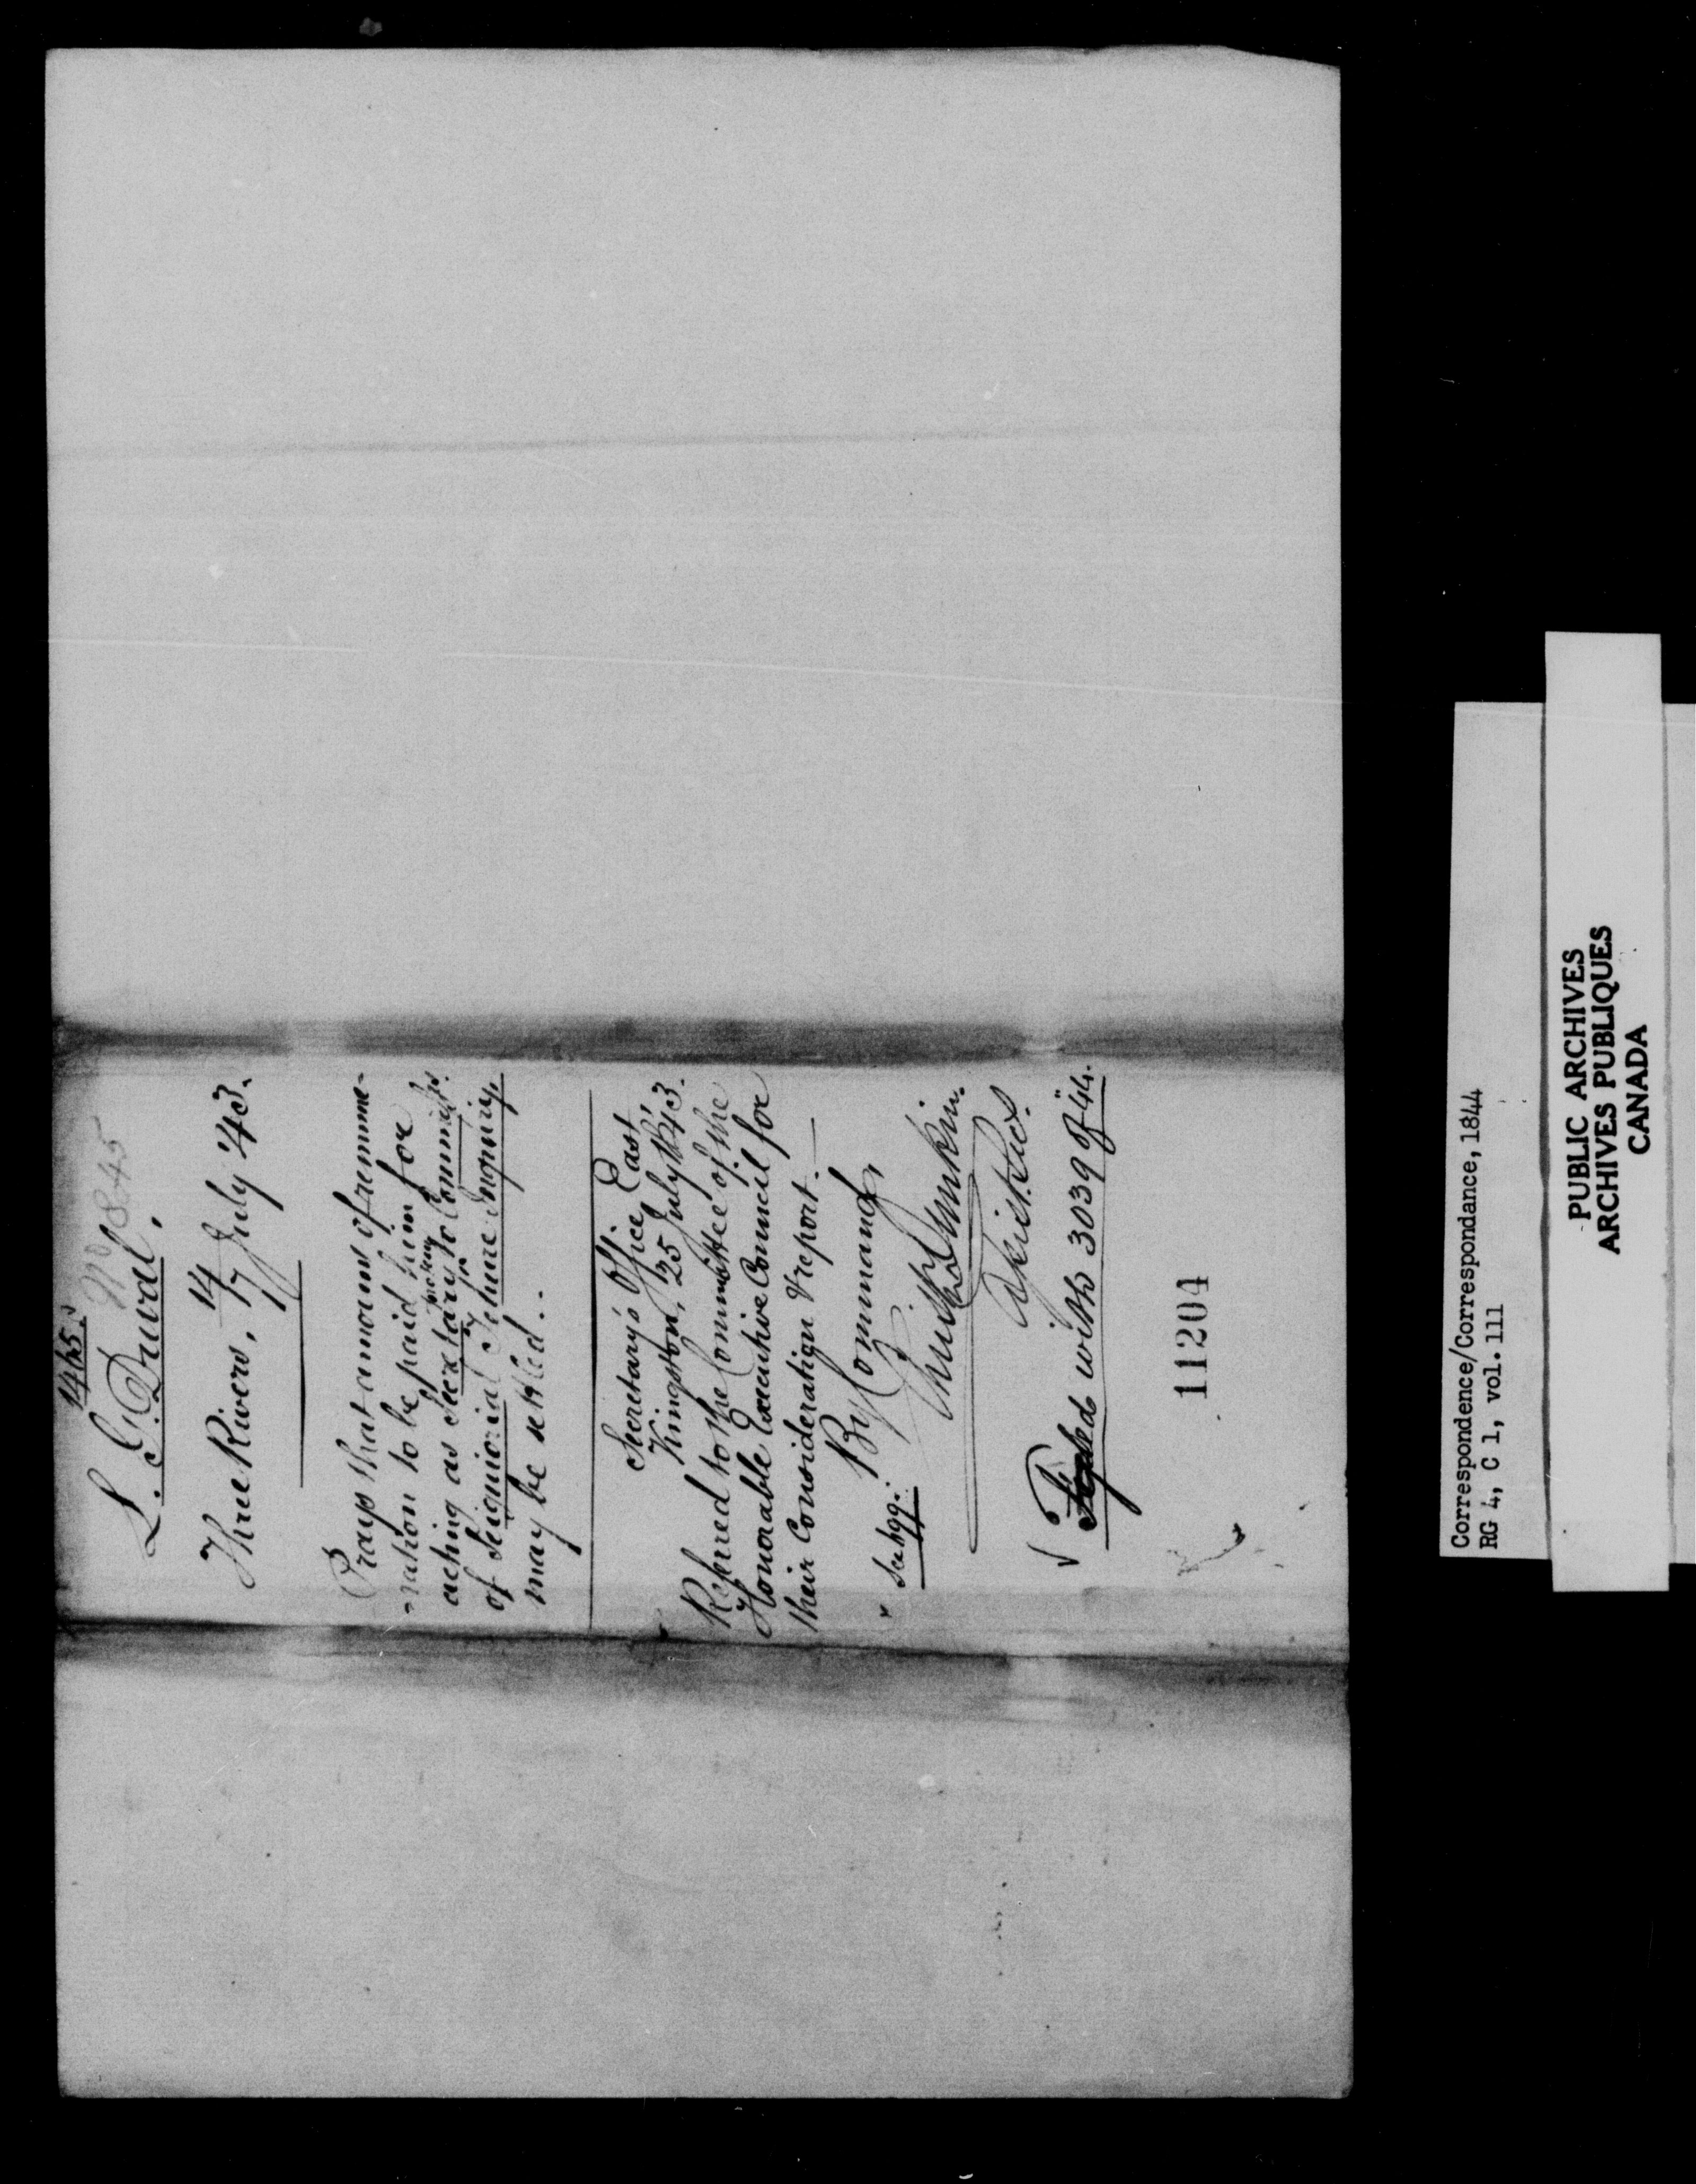 1465.
No 845
L. G. Duval,
Three Rivers, 14/17 July 43.
Prays that amount of remune-
-ration to be paid him for
acting as Secretary to Commissrs.
of Seigniorial Tenure Inquiry,
may be settled..
Secretary's Office East,
Kingston, 25 July 1843.
Referred to the Committee of the
Honorable Executive Council for
their Consideration & report.
By Command,
Dunkin.
Fyled with 3039 of 44.
11204
Correspondence/Correspondance, 1844
RG 4, C 1, vol. 111
PUBLIC ARCHIVES
ARCHIVES PUBLIQUES
CANADA